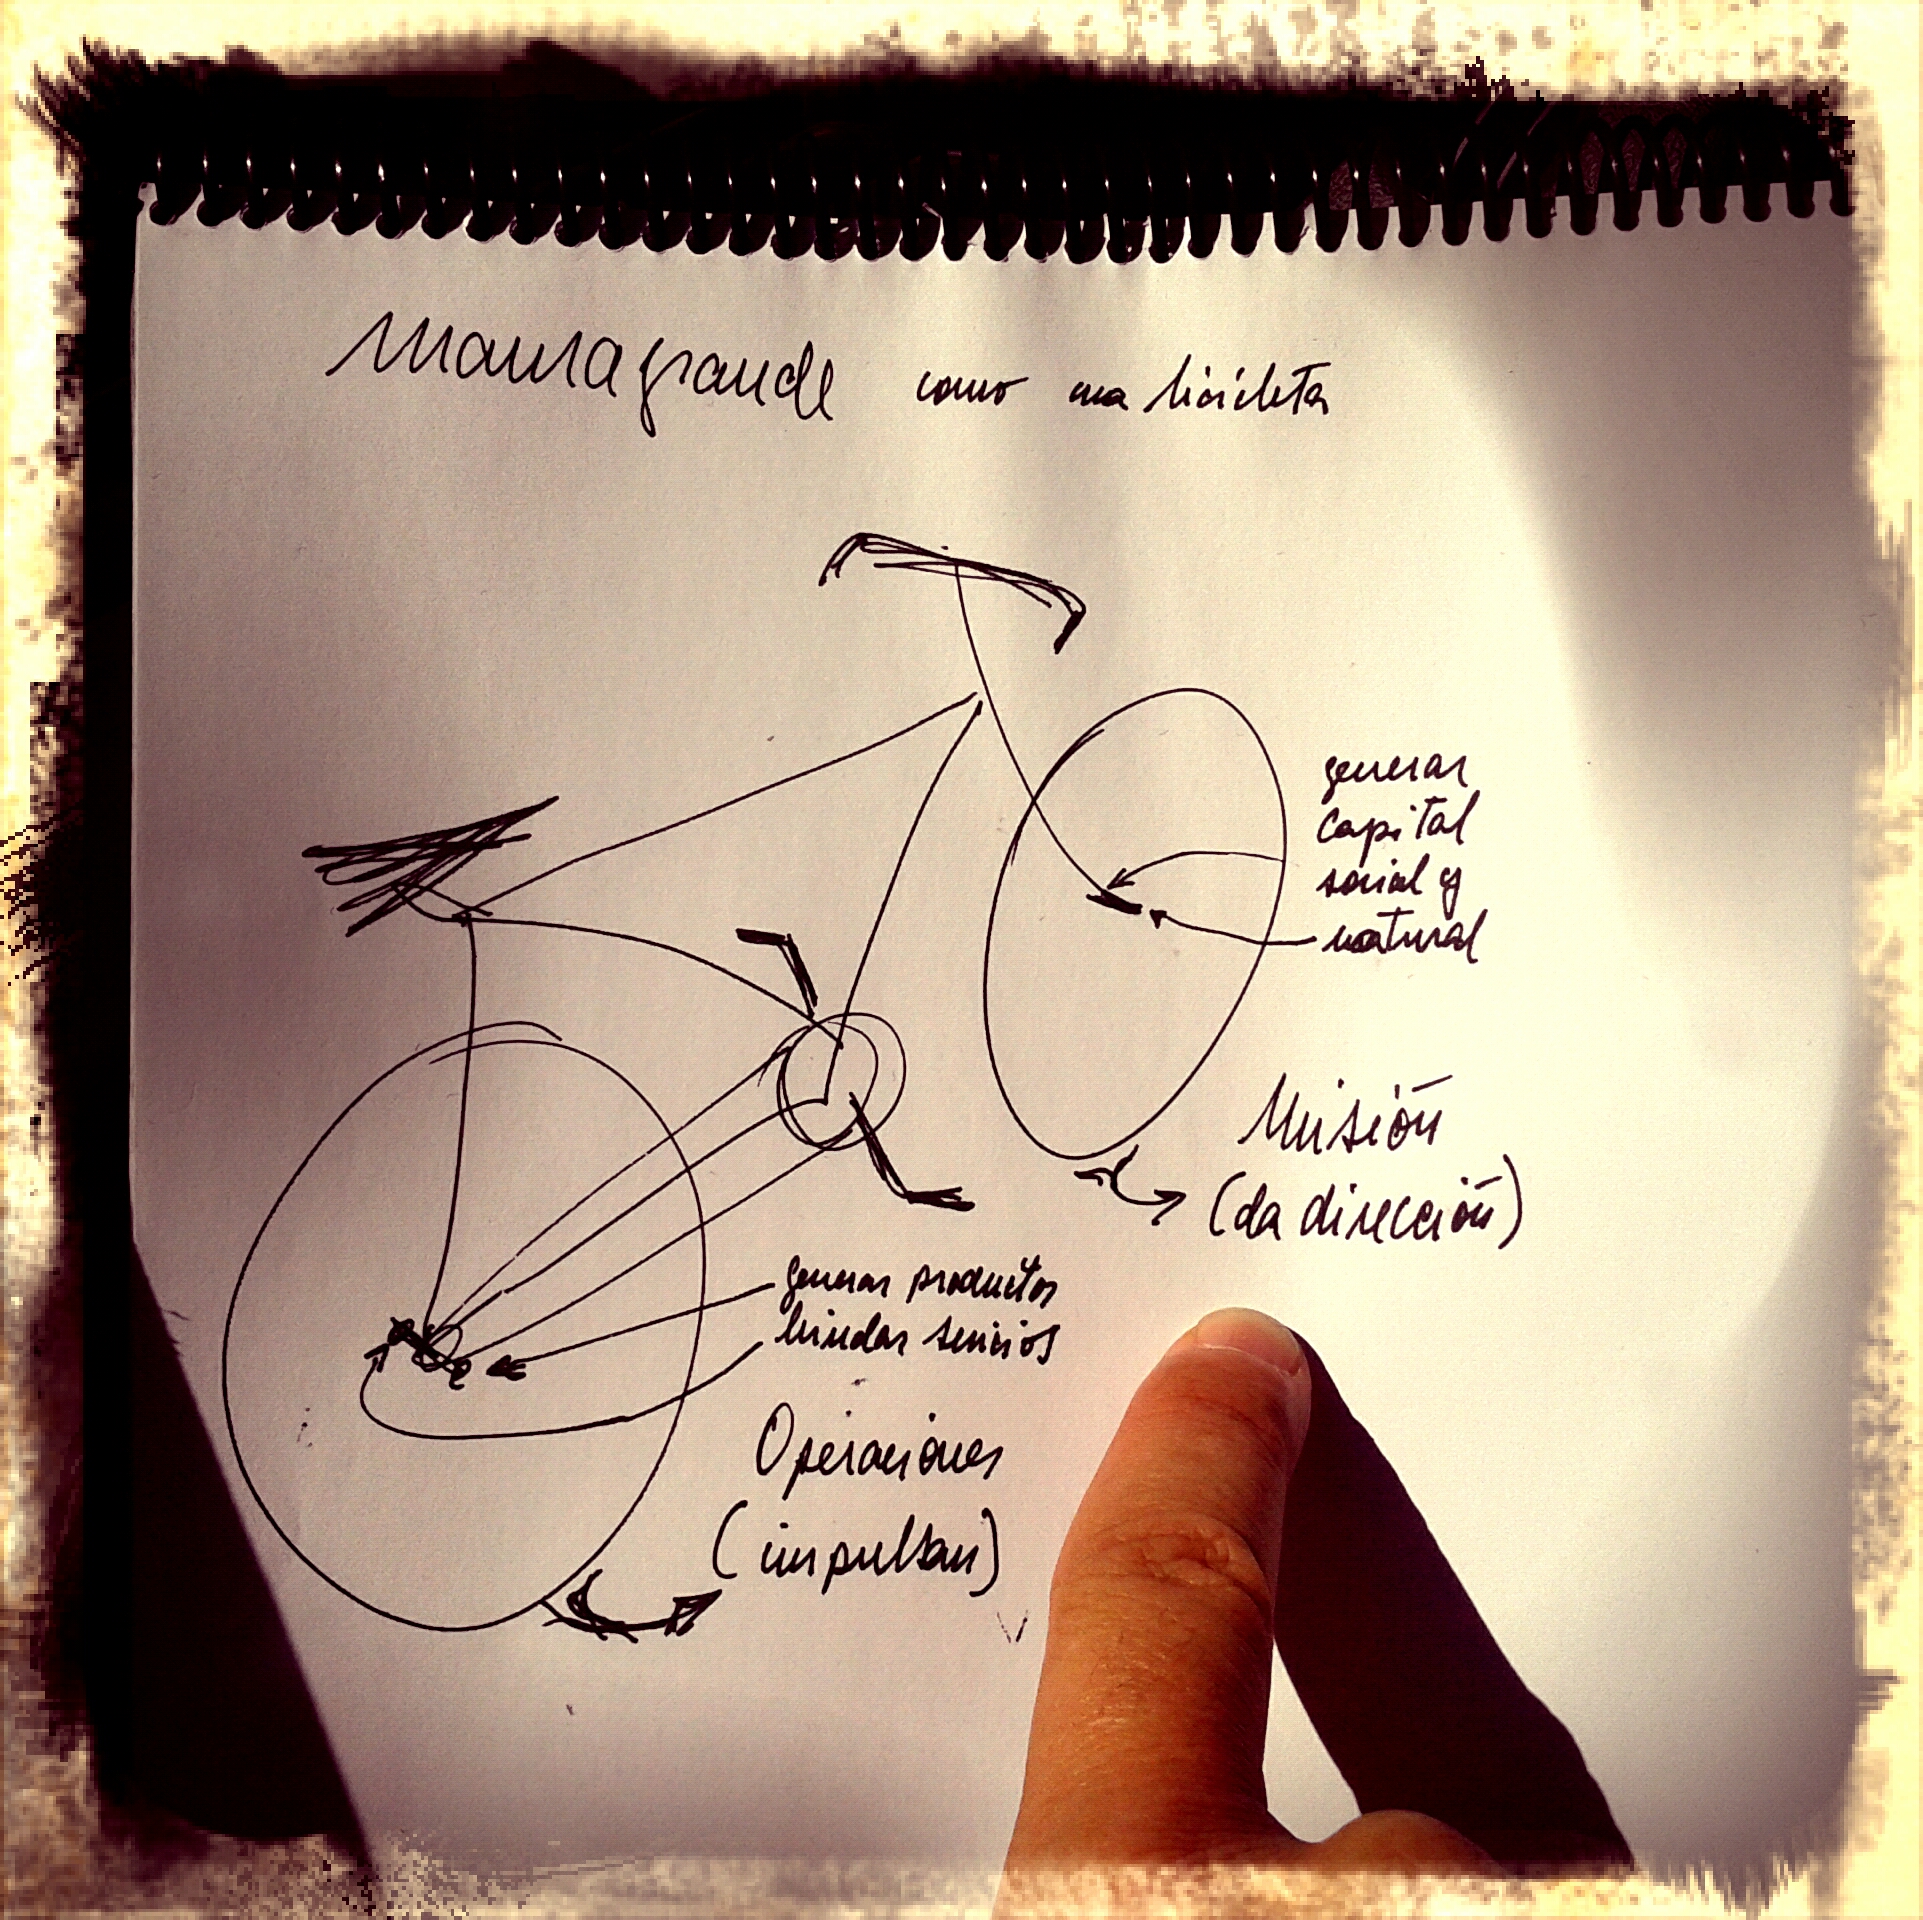 Mamagrande como una bicicleta
generar
capital
social y
natural
Misión
(da dirección)
generar productos
brindar servicios
Operaciones
(impulsan)